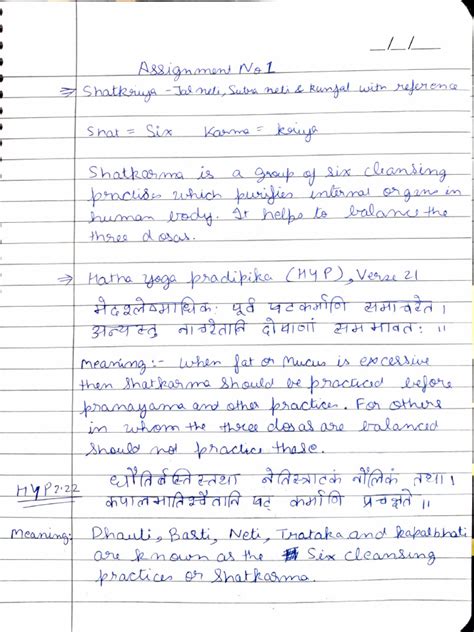 _/_/_
Assignment No 1
⇒ Shatkriya - Jal neti, Sutra neti & Kunjal with reference
Shat = Six   Karma = kriya
Shatkarma is a group of six cleansing
practises which purifies internal organs in
human body. It helps to balance the
three dosas.
⇒ Hatha yoga pradipika (HYP), Verse 21
मेदश्लेष्माधिकः पूर्वं षटकर्माणि समाचरेत।
अन्यस्तु नाचरेतानि दोषाणां समभावतः ॥
Meaning:- When fat or Mucus is excessive
then Shatkarma should be practiced before
pranayama and other practices. For others
in whom the three dosas are balanced
should not practice these.
HYP 2:22
धौतिर्बस्तिस्तथा नेतिस्त्राटकं नौलिकं तथा।
कपालभातिश्चैतानि षट् कर्माणि प्रचक्षते॥
Meaning: Dhauti, Basti, Neti, Trataka and Kapalbhati
are known as the Six cleansing
practices or Shatkarma.